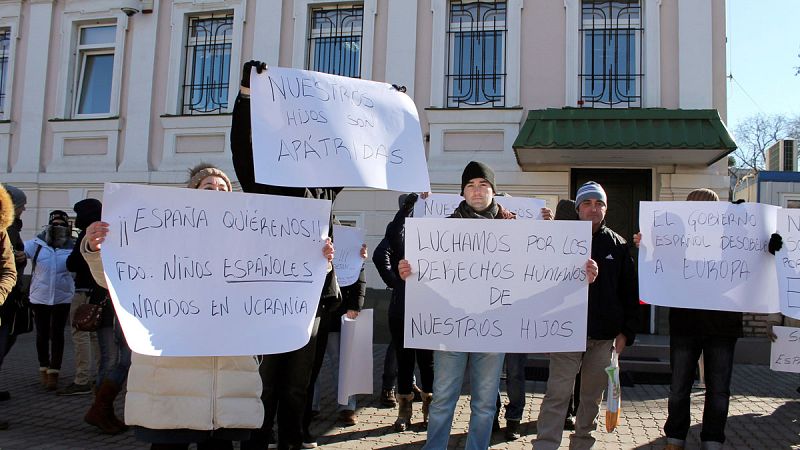 NUESTROS
HIJOS SON
APÁTRIDAS
¡¡ESPAÑA QUIÉRENOS!!
FDO: NIÑOS ESPAÑOLES
NACIDOS EN UCRANIA
LUCHAMOS POR LOS
DERECHOS HUMANOS
DE
NUESTROS HIJOS
EL GOBIERNO
ESPAÑOL DESOBEDECE
A EUROPA